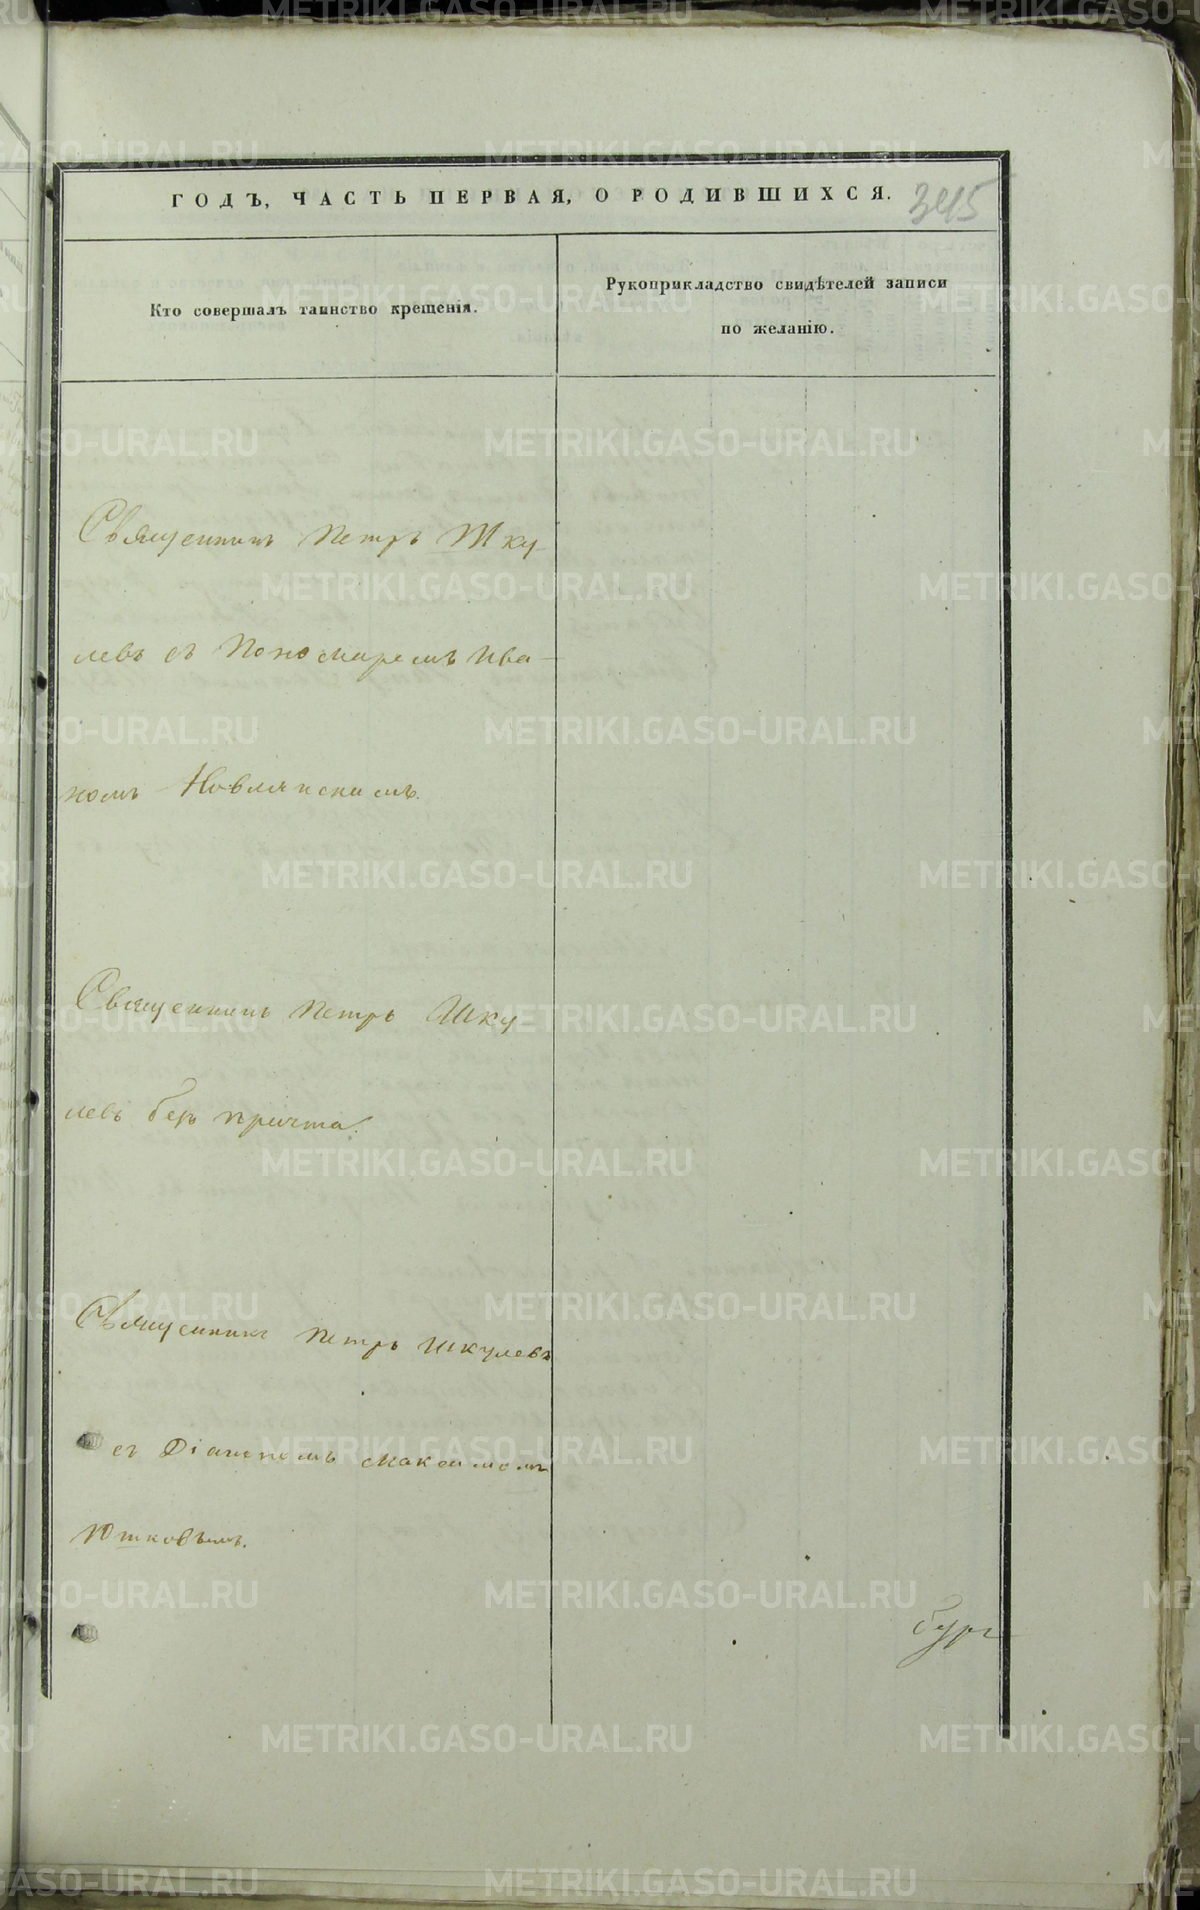 ГОДЪ, ЧАСТЬ ПЕРВАЯ, О РОДИВШИХСЯ.
345
Кто совершалъ таинство крещенія.
Рукоприкладство свидѣтелей записи
по желанію.
Священникъ Петръ Шку-
левъ съ Пономаремъ Ива-
номъ Новлянскимъ.
Священникъ Петръ Шку-
левъ безъ причта.
Священникъ Петръ Шкулевъ
съ Діакономъ Максимомъ
Юшковымъ.
METRIKI.GASO-URAL.RU